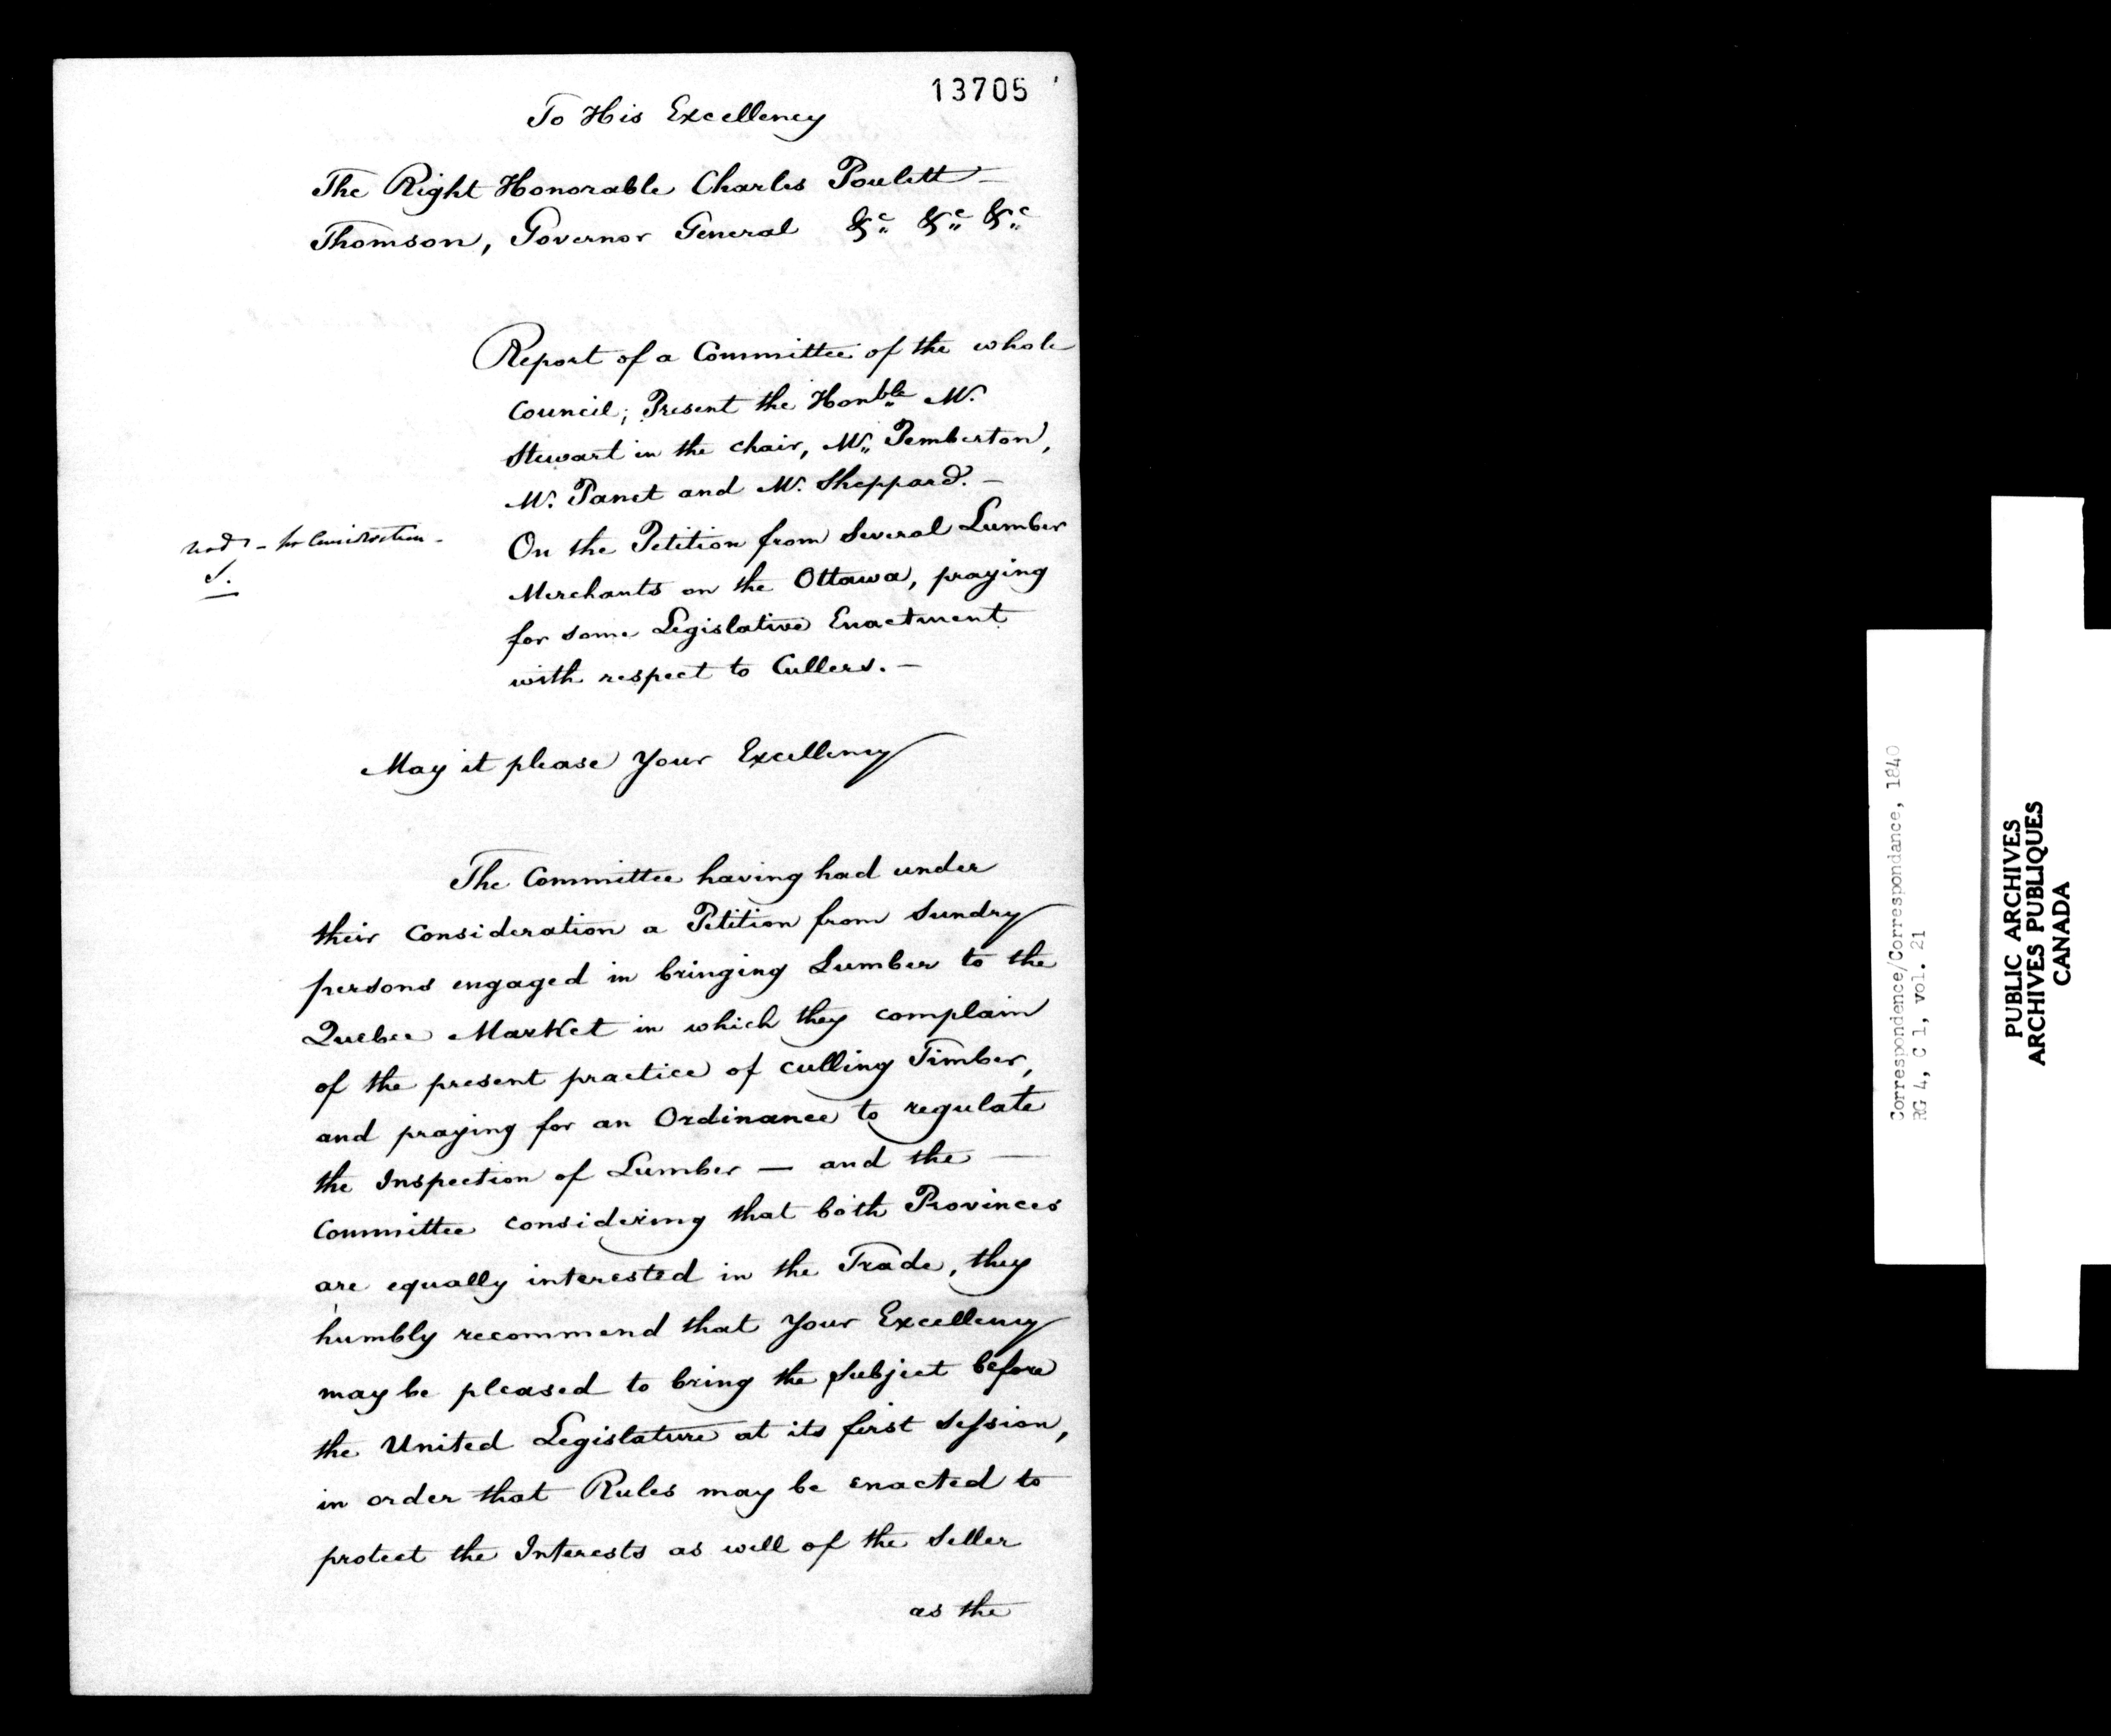 13705
To His Excellency
The Right Honorable Charles Poulett –
Thomson, Governor General &c &c &c
Report of a Committee of the whole
Council; Present the Honble Mr.
Stewart in the chair, Mr. Pemberton,
Mr. Panet and Mr. Sheppard. –
On the Petition from Several Lumber
Merchants on the Ottawa, praying
for some Legislative Enactment
with respect to Cullers. –
for Consideration –
May it please Your Excellency
The Committee having had under
their Consideration a Petition from Sundry
persons engaged in bringing Lumber to the
Quebec Market in which they complain
of the present practice of culling Timber,
and praying for an Ordinance to regulate
the Inspection of Lumber — and the —
Committee considering that both Provinces
are equally interested in the Trade, they
humbly recommend that Your Excellency
may be pleased to bring the Subject before
the United Legislature at its first Session,
in order that Rules may be enacted to
protect the Interests as well of the Seller
as the
Correspondence/Correspondance, 1840
RG 4, C 1, vol. 21
PUBLIC ARCHIVES
ARCHIVES PUBLIQUES
CANADA